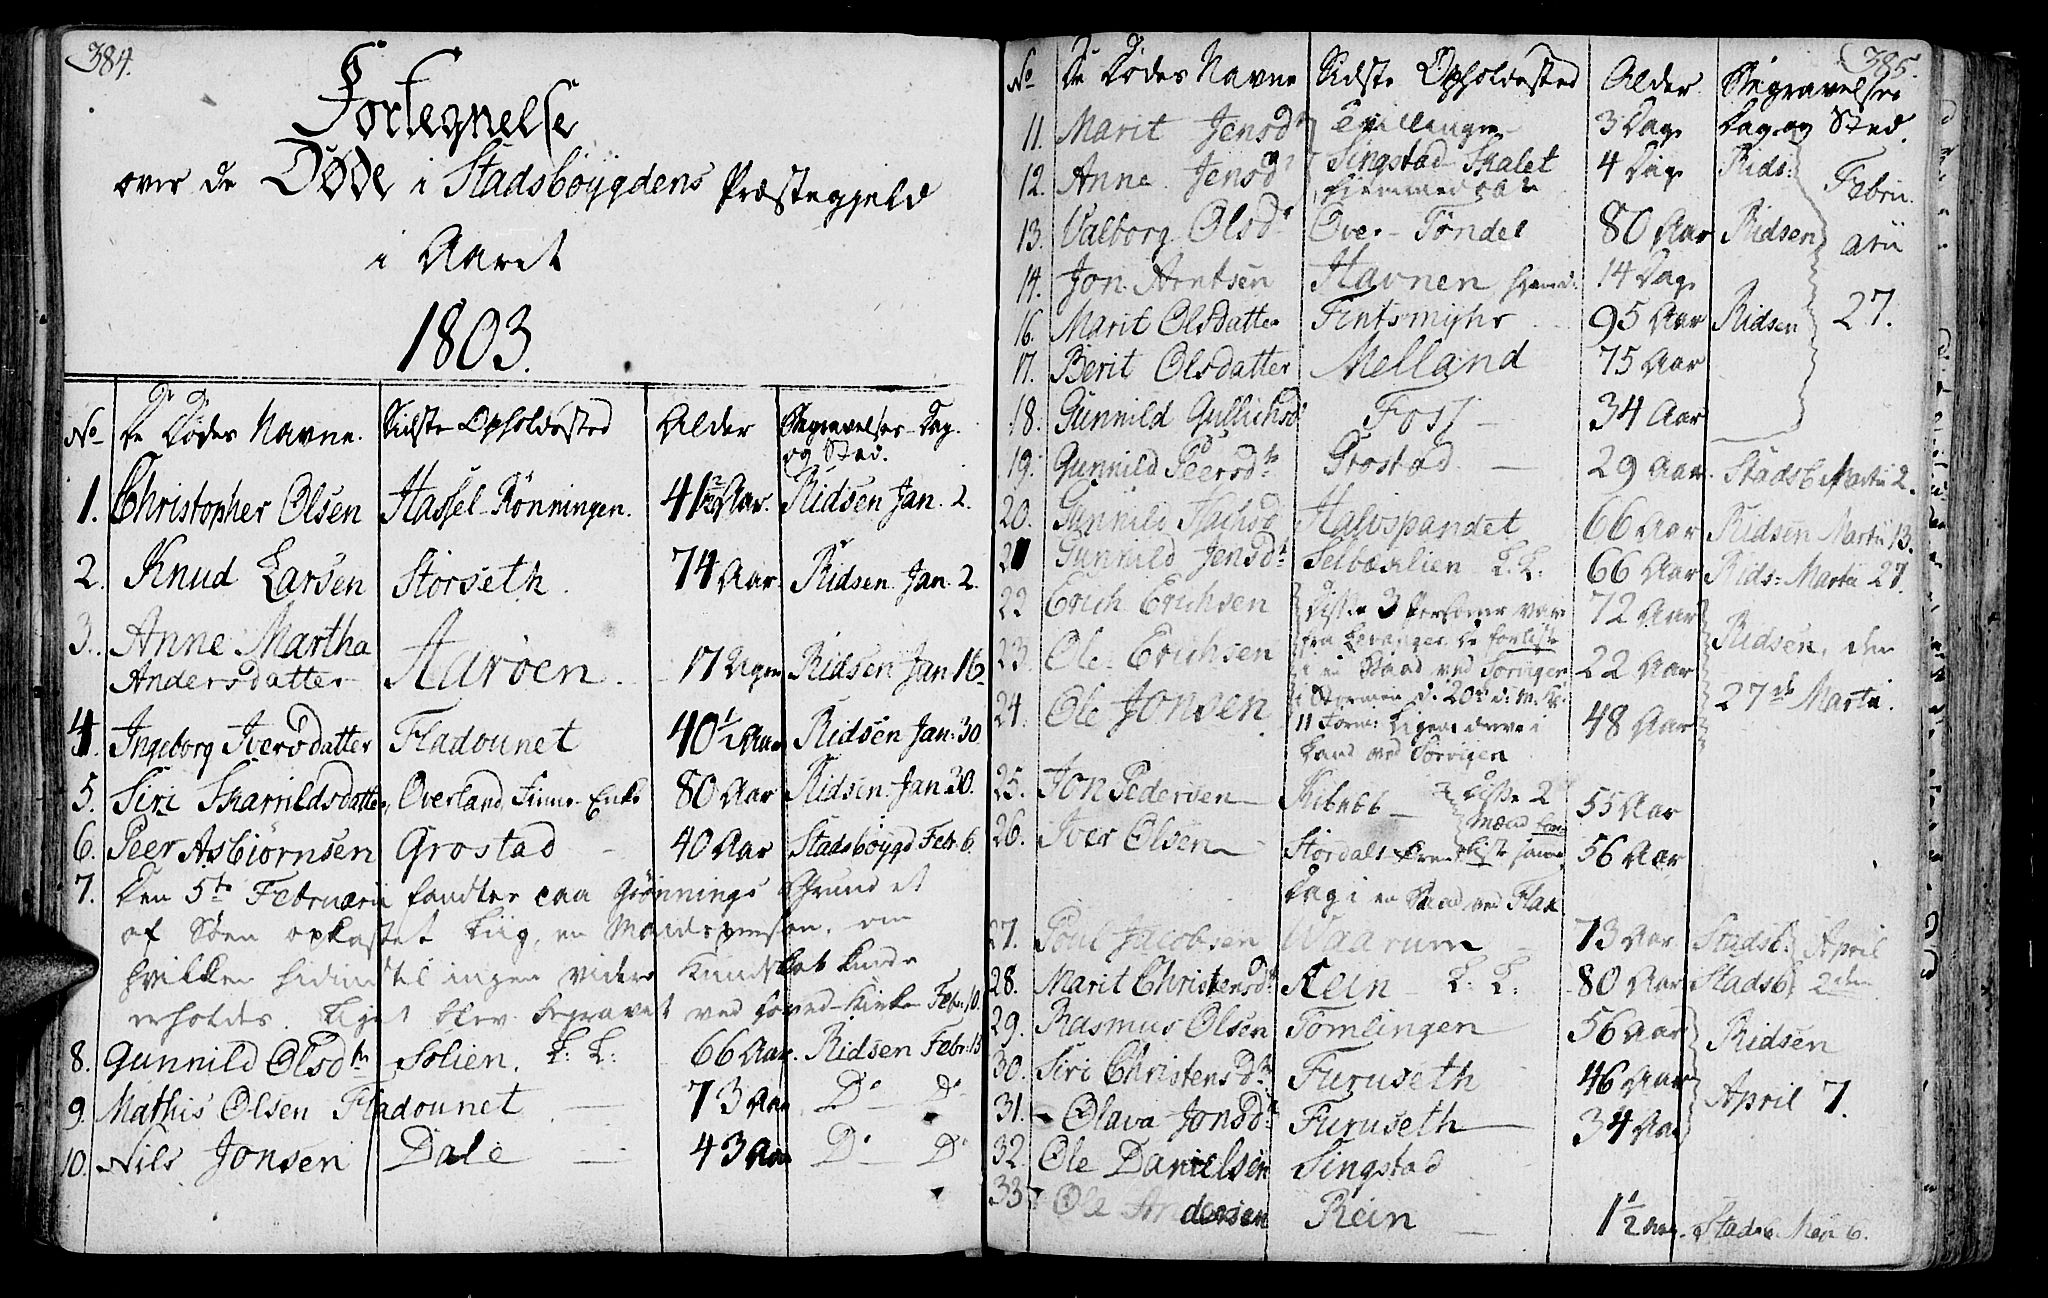 384.
Fortegnelse
over de Døde i Stadsbøygdens Præstegjeld
i Aaret
1803.
No De Dødes Navne. Sidste Opholdssted Alder Begravelses-Dag.
og Sted.
1. Christopher Olsen Hassel-Rönningen. 41 Aar. Ridsen Jan. 2.
2. Knud Larsen Storseth. 74 Aar Ridsen Jan. 2.
3. Anne Martha
Andersdatter Aarøen. 17 Uger Ridsen Jan 16
4. Ingeborg Iversdatter Fladounet 40 1/2 Aar Ridsen Jan. 30
5. Siri Skarnildsdatter, Overland, Finne-Enke 80 Aar Ridsen Jan 30.
6. Peer Asbiörnsen Grostad 40 Aar Stadsbøygd Febr. 6.
7. Den 5te Februarii fandtes paa Grønnings Grund et
af Søen opkastet Liig, en Mandsperson, om
hvilken hidindtil ingen videre Kundskab kunde
erholdes. Liget blev begravet ved Hoved-Kirken Febr. 10.
8. Gunnild Olsdtr Solien. L: L: 66 Aar. Ridsen Febr. 13
9. Mathis Olsen Fladounet 73 Aar Do Do
10. Nils Jonsen Dale 43 Aar Do Do
385.
No De Dødes Navne Sidste Opholdssted Alder Begravelses
Dag og Sted.
11. Marit Jensdr Tvillinger 3 Dage
12. Anne Jensdr Singstad-Skalet 4 Dage Rids: Febru
13. Valborg Olsdr Over-Töndel 80 Aar Ridsen arii
14. Jon Arntsen Havnen 14 Dage
16. Marit Olsdatter Fintsmyhr 95 Aar Ridsen 27.
17. Berit Olsdatter Melland 75 Aar
18. Gunnild Gullichsdr Foss 34 Aar
19. Gunnild Peersdtr Grostad 29 Aar. Stadsb Martii 2.
20. Gunnild Isachsd Halvspandet 66 Aar Ridsen Martii 13.
21 Gunnild Jensdr Selboslien L. L. 66 Aar Rids: Martii 27.
22 Erich Erichsen Disse 3 Personer var 72 Aar
fra Levanger de forliste
23. Ole Erichsen i en Baad ved Sørvigen 22 Aar Ridsen, den
i Stormen d: 20de
24. Ole Jonsen 48 Aar 27de Martii.
Land ved Sørvigen
25. Jon Pedersen Skibnes Disse 2 55 Aar
Mænd for-
26. Iver Olsen Stördalsøren liste samme 56 Aar
Dag i en Baad ved Flak
27. Poul Jacobsen Waarum 73 Aar Stadsb. April
28. Marit Christensdr Rein L. L. 80 Aar Stadsb 2den
29. Rasmus Olsen Tömlingen 56 Aar Ridsen
30. Siri Christensdtr Furuseth 46 Aar
31. Olava Jonsdr Furuseth 34 Aar April 7.
32. Ole Danielsen Singstad
33 Ole Andersen Rein 1 1/2 Aar. Stadsb. Maji 6.